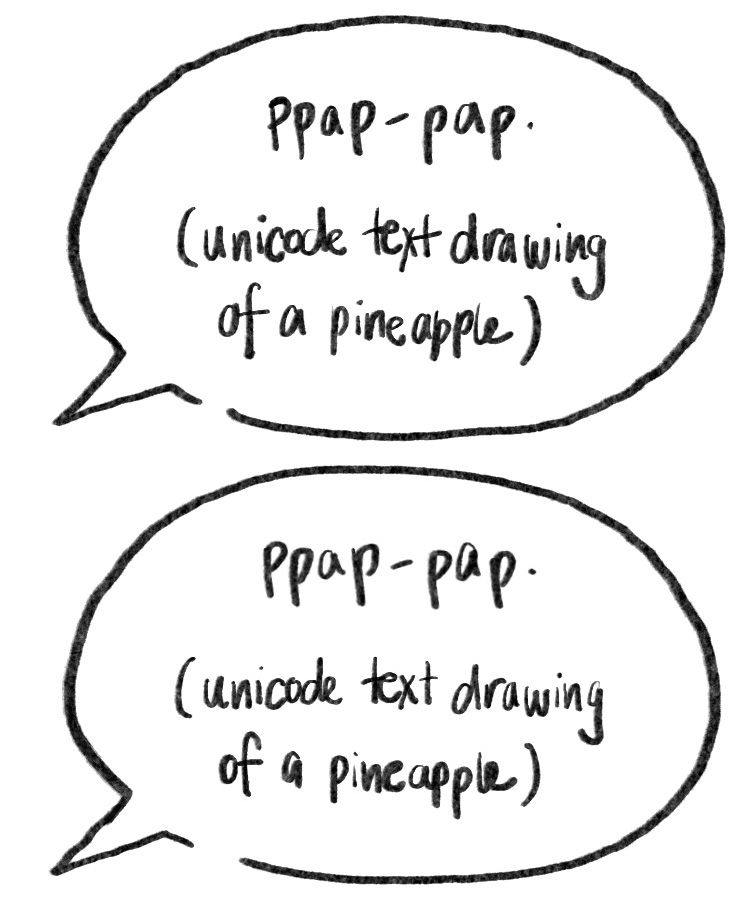 ppap-pap.
(unicode text drawing
of a pineapple)
ppap-pap.
(unicode text drawing
of a pineapple)